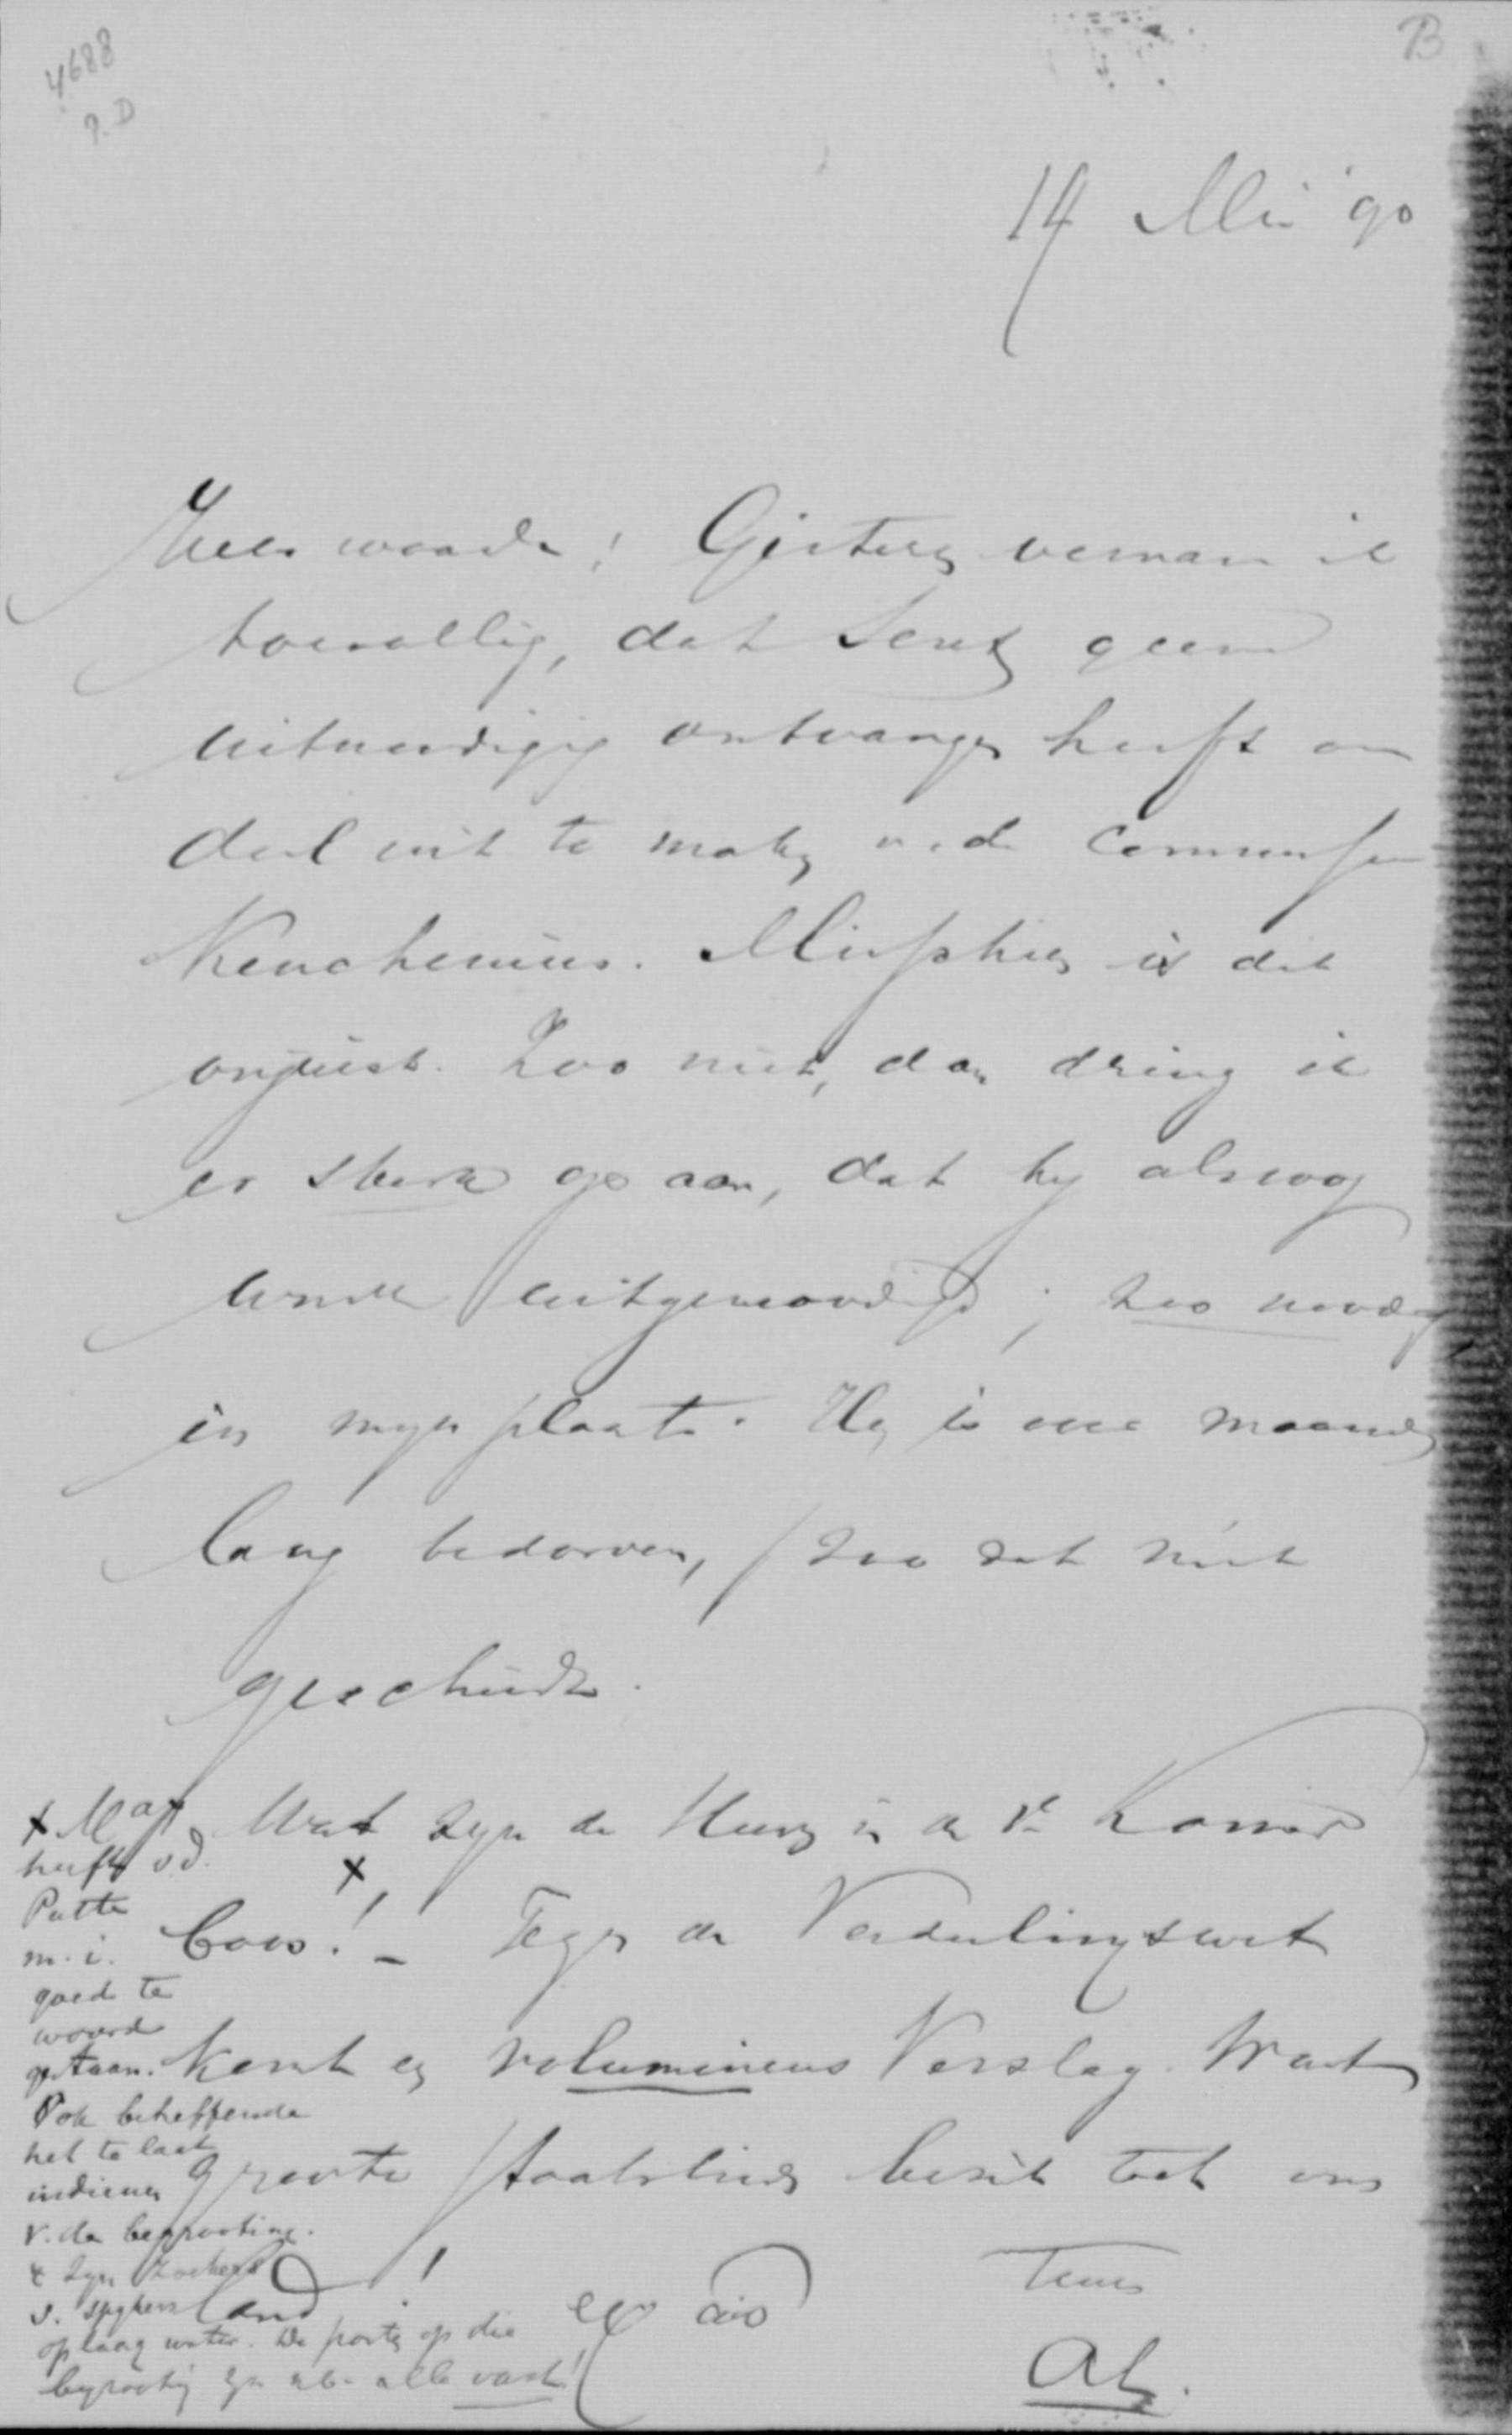 4688
P.D
B
14 Mei 90
Zeer waarde! Gisteren vernam ik
toevallig, dat geen
uitnoodiging ontvangen heeft om
deel uit te maken v. d. Commissie
Keuchenius. Misschien is dit
onjuist. Zoo niet, dan dring ik
er sterk op aan, dat hy alsnog
worde uitgenoodigd; zoo noodig
in myn plaats. Hy is een maand
lang bedorven, zoo dat niet
geschiedt.
Wat zyn de Heeren in de Kamer
boos! x – Tegen de Verdeelingswet
komt een volumineus Verslag. Wat
groote staatslieden bezit toch ons
land!
ex
Tuus
x
heeft v.d.
Putte
m.i.
goed te
woord
gestaan.
Ook betreffende
het te laat
indienen
v. de begrooting.
& zyn
v. spykers
op laag water. De posten op die
begrooting zyn alle vast!